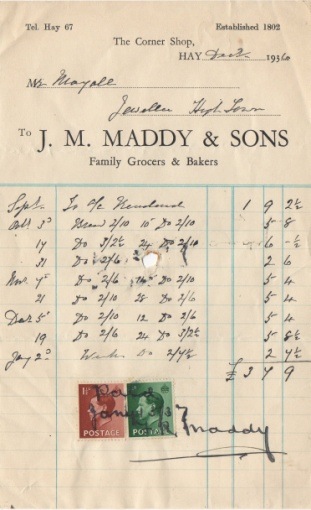 Tel. Hay 67 Established 1802
The Corner Shop,
HAY 1936
Mr Mayall
Jeweller High Town
To J. M. MADDY & SONS
Family Grocers & Bakers
Sept To a/c Rendered 1 9 2½
Oct 3rd Bread 2/10 10 Do 2/10 5 8
17 Do 3/2½ 24 Do 2/10 6 -½
31 Do 2/6 2 6
Nov 7th Do 2/6 Do 2/10 5 4
21 Do 2/10 28 Do 2/6 5 4
Dec 5th Do 2/10 12 Do 2/6 5 4
19 Do 2/6 24 Do 3/2½ 5 8½
Jany 2nd Do 2/7½ 2 7½
£ 3 7 9
Paid
POSTAGE POSTAGE
Maddy